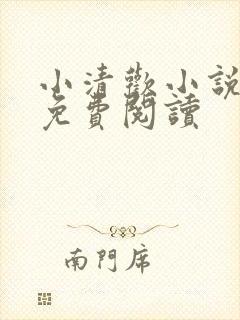 小清歡小說
免費閱讀
南門席